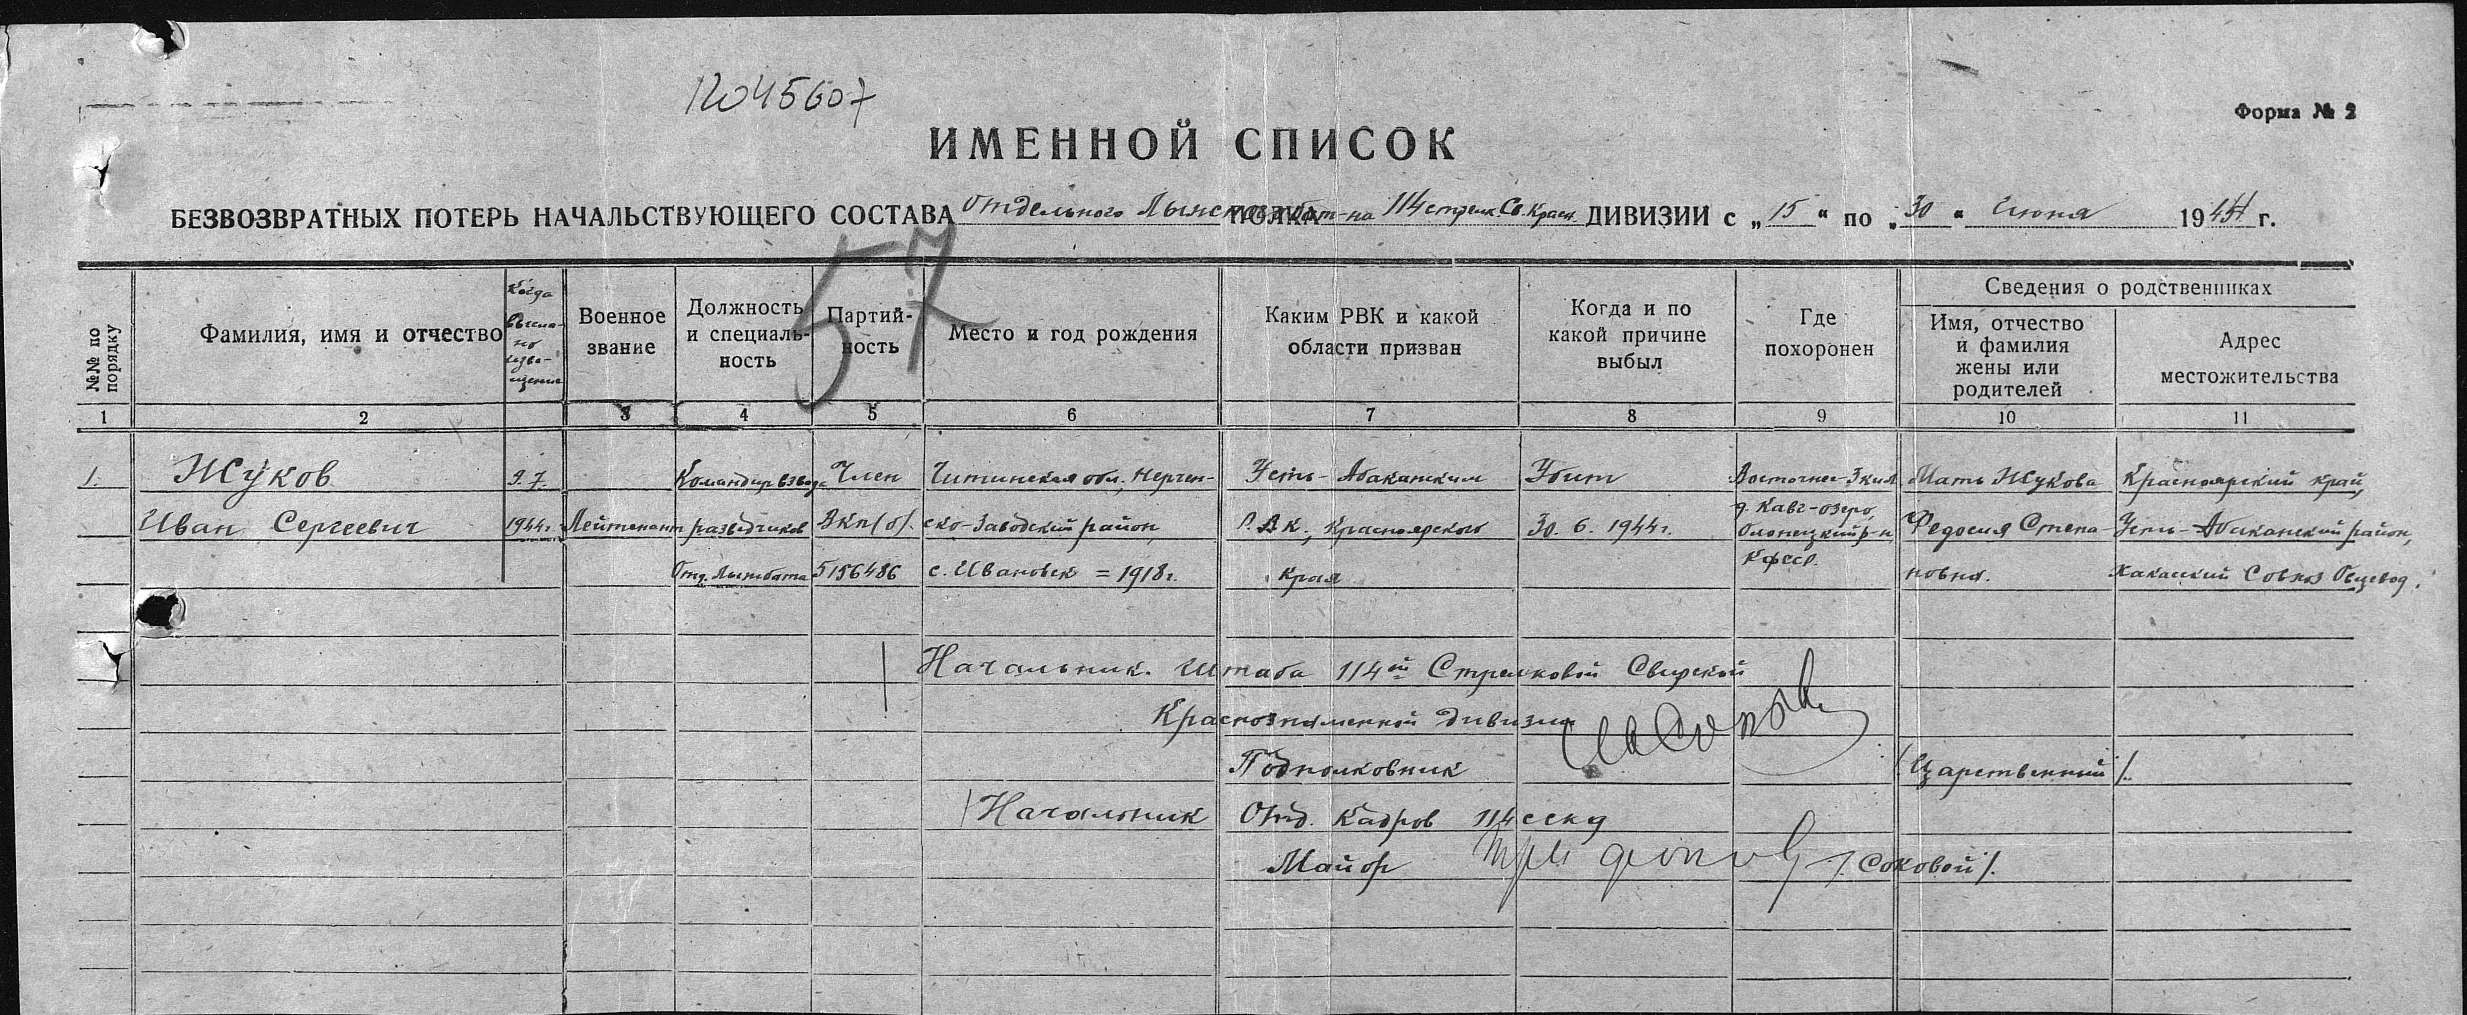 12045607
Форма № 2
ИМЕННОЙ СПИСОК
БЕЗВОЗВРАТНЫХ ПОТЕРЬ НАЧАЛЬСТВУЮЩЕГО СОСТАВА отдельного Лыжн. ПОЛКА бат-на 114 стрелк. Св. Красн. ДИВИЗИИ с „15“ по „30“ Июня 1944 г.
57
№№ по порядку
Фамилия, имя и отчество
Когда высла-но изве-щение
Военное звание
Должность и специаль-ность
Партий-ность
Место и год рождения
Каким РВК и какой области призван
Когда и по какой причине выбыл
Где похоронен
Сведения о родственниках
Имя, отчество и фамилия жены или родителей
Адрес местожительства
1 2 3 4 5 6 7 8 9 10 11
1. Жуков 9.7. Командир взвода Член Читинская обл., Нерчен- Усть-Абаканским Убит Восточнее 3 км Мать Жукова Красноярский край,
Иван Сергеевич 1944г. Лейтенант разведчиков ВКП(б). ско-Заводский район, Р.В.К., Красноярского 30.6.1944г. д. Кавг-озеро, Олонецкий р-н Федосия Степа- Усть-Абаканский район,
Отд. Лыжбата 5156486 с. Ивановск = 1918г. края КФССР. новна. Хакаский Совхоз Овцевод.
Начальник Штаба 114й Стрелковой Свирской
Краснознаменной дивизии
Подполковник /Царственный/.
Начальник Отд. Кадров 114 сскд
Майор /Соковой/.